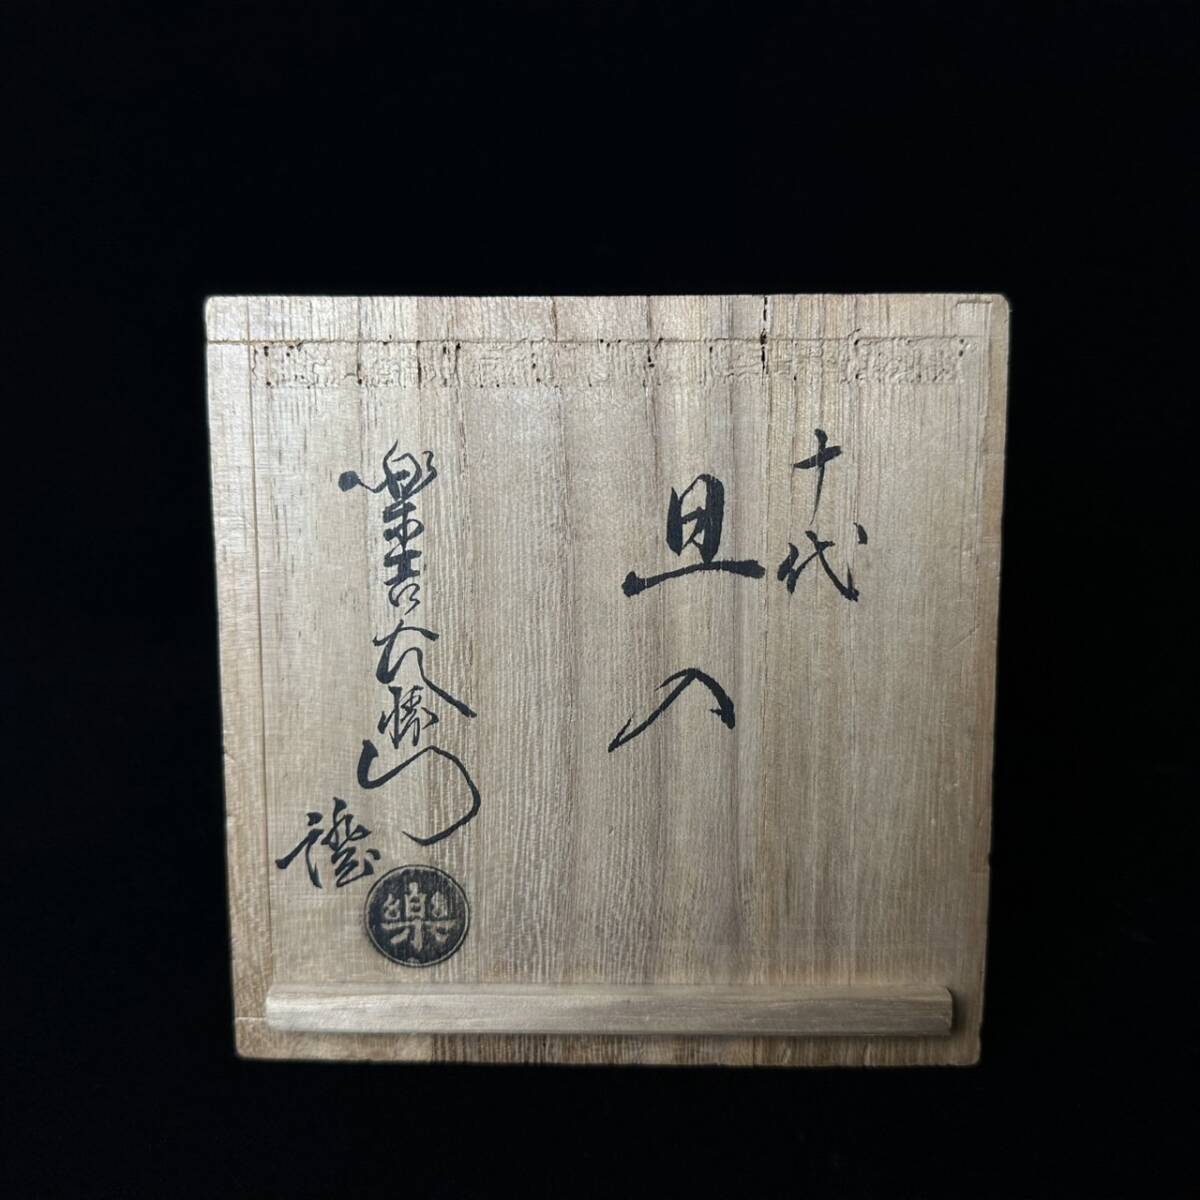 十代
旦入
樂吉左衛門
證
樂